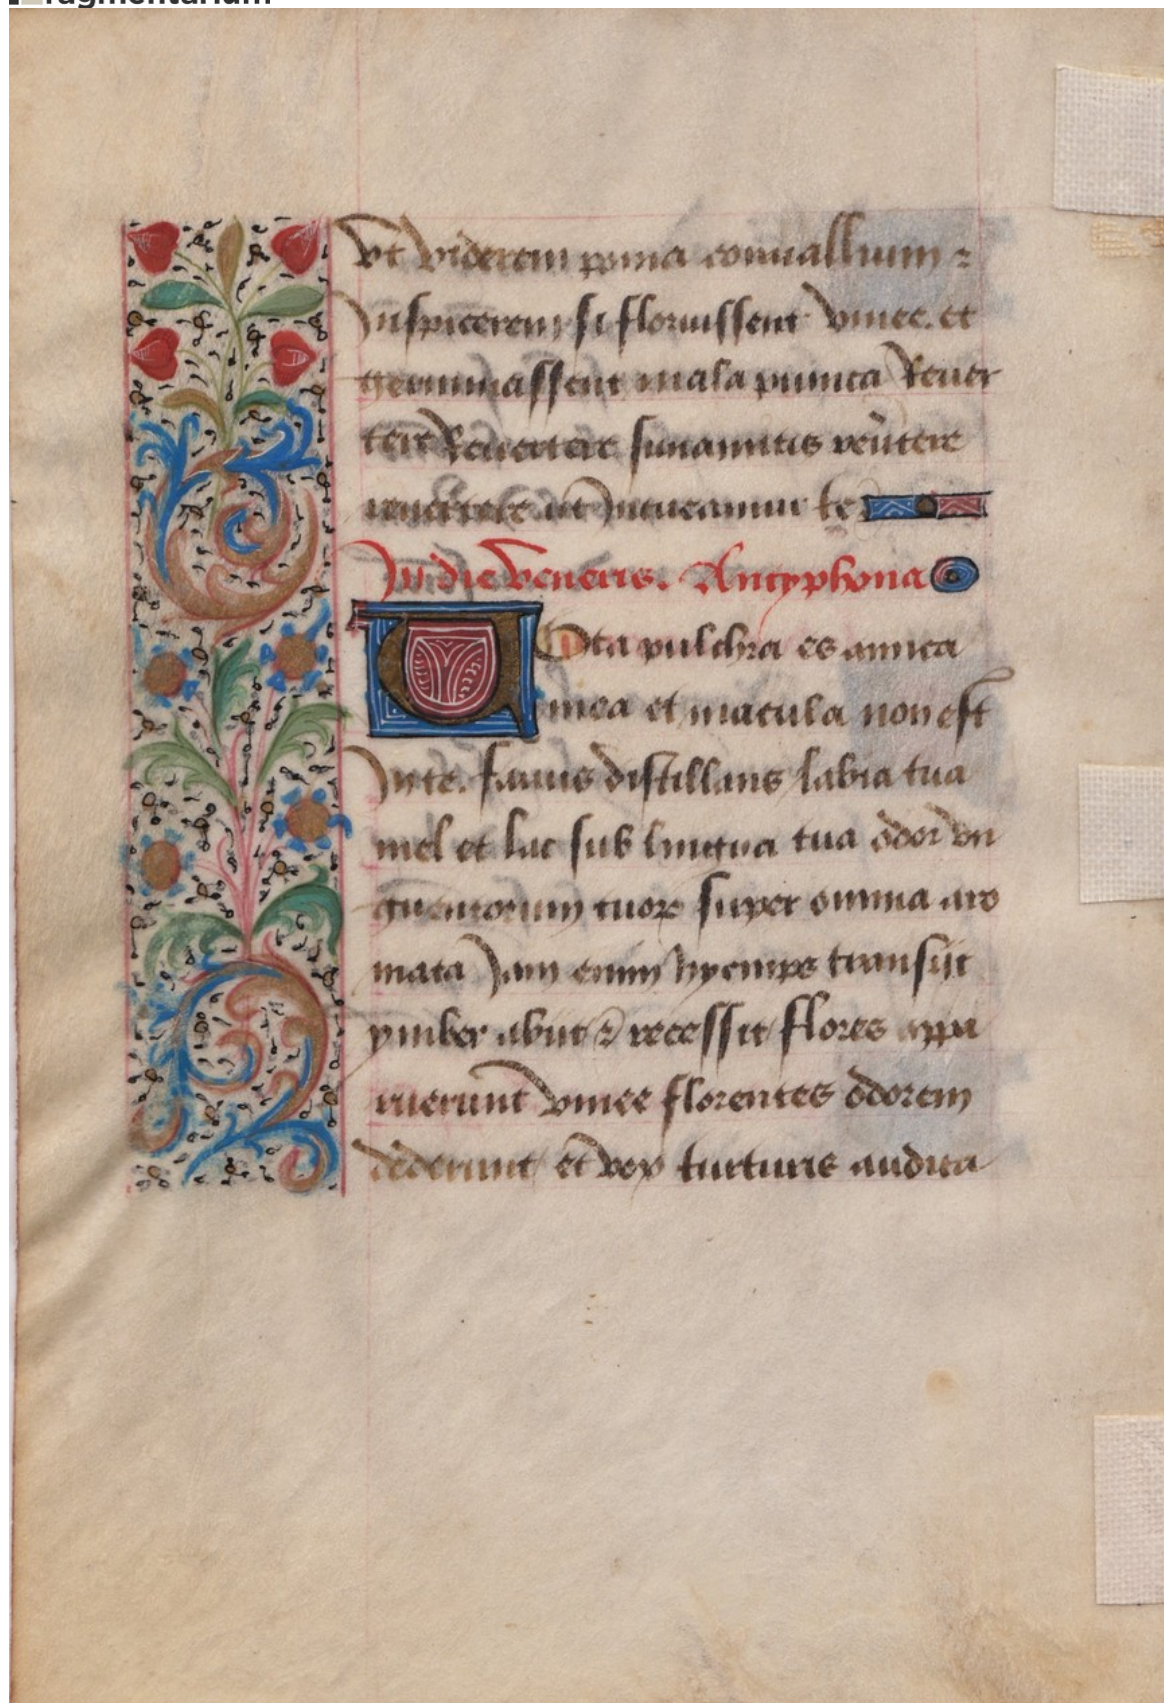 fragmentarium
vt viderem poma conuallium ⁊
Inspicerem si floruissent vinee. et
germinassent mala punica Reuer
tere Reuertere sunamitis reũtere
reuertere ut Intueamur te
In die veneris. Antyphona
Tota pulchra es amica
mea et macula non est
In te. fauus distillans labia tua
mel et lac sub lingua tua odor vn
guentorum tuoꝝ super omnia aro
mata Jam enim hyemps transijt
ymber abijt ⁊ recessit flores appa
ruerunt vinee florentes odorem
dederunt et vox turturis audita